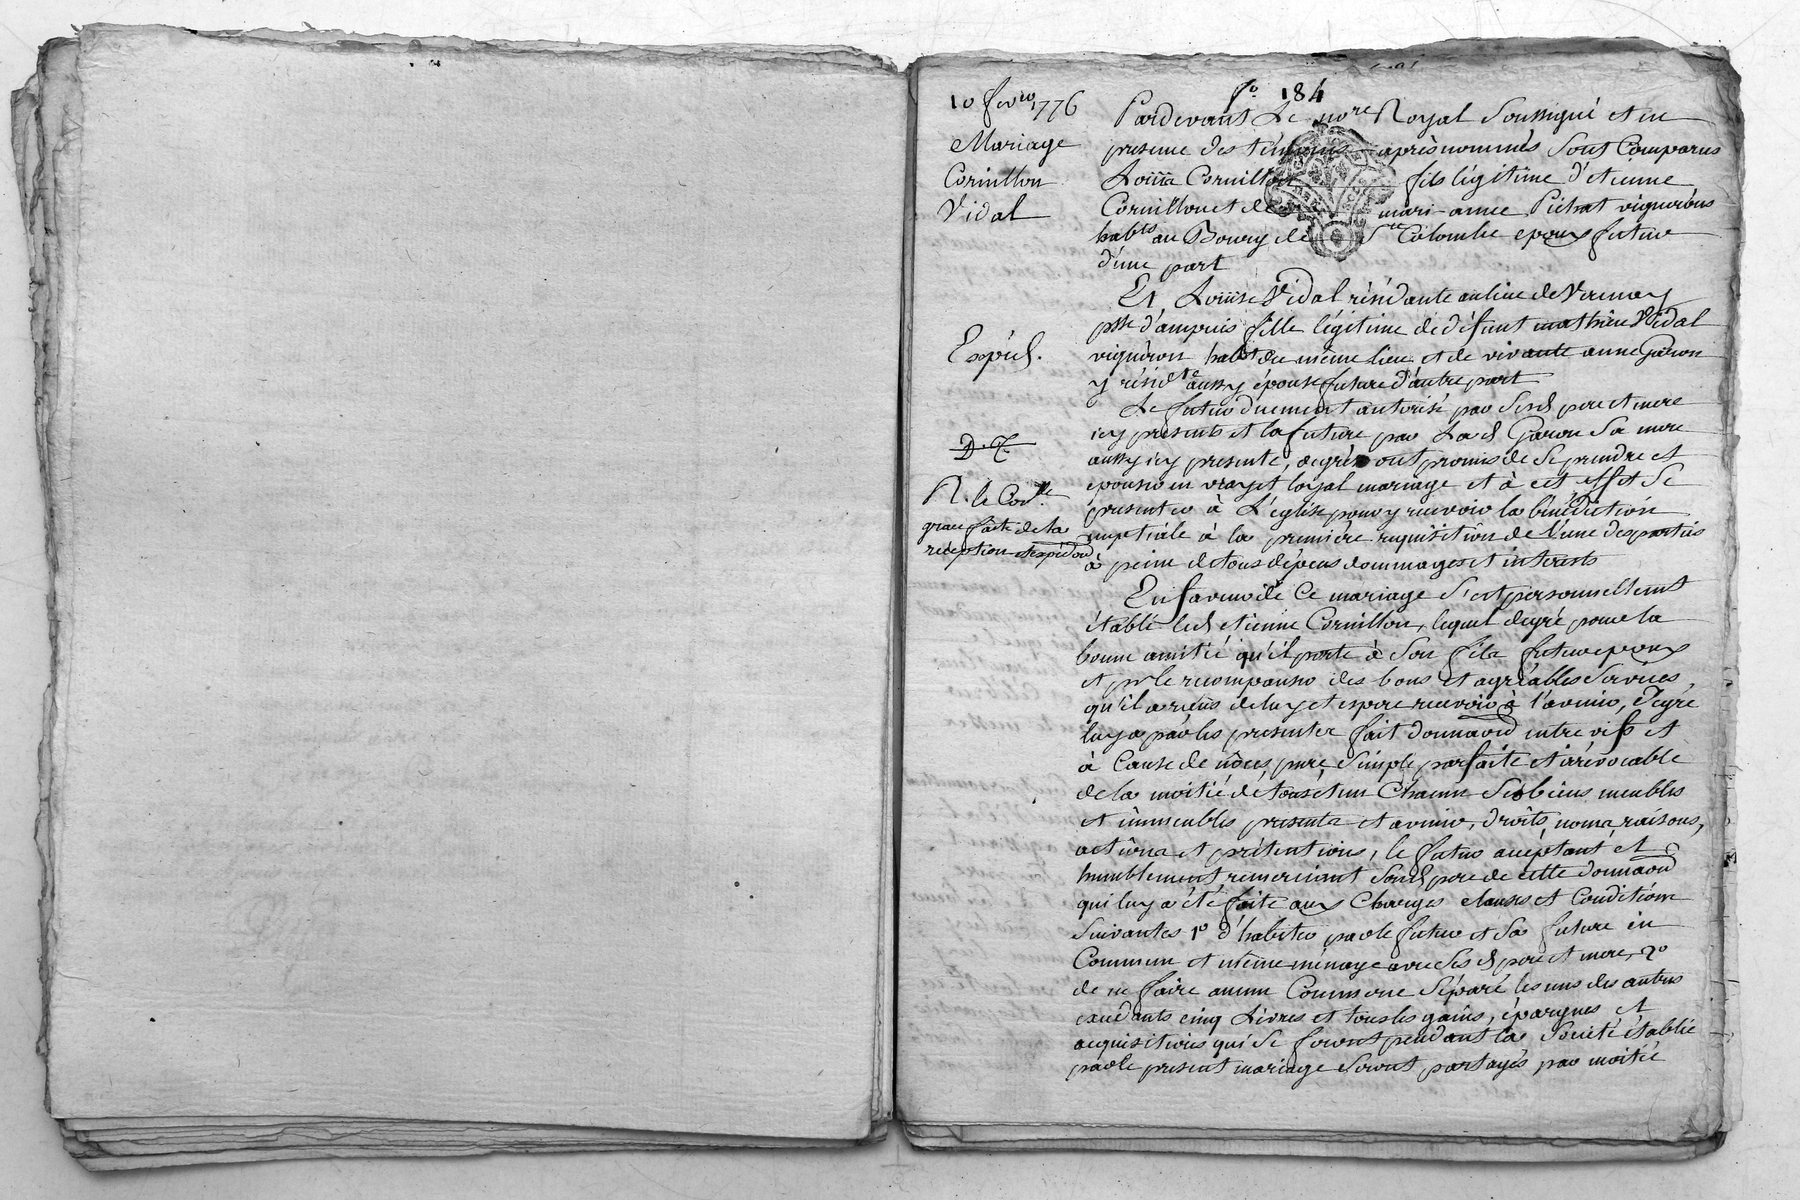 fo. 184
10 fevro 1776
Mariage
Cornillon
Vidal
Expéd.
D. T.
R. le Cor.lle
grace faite de la
réception et expéd.
Pardevant Le nore Royal Soussigné et en
presence des témoins après nommés Sont Comparus
Cornillon fils légitime d'etienne
Cornillon et de mari-anne Pichat vignerons
habts au Bourg de Ste Colombe epoux futur
d'une part
Et Louise Vidal résidante au lieu de Verenay
psse d'ampuis fille légitime de défunt mathieu Vidal
vigneron habt du même lieu et de vivante anne Garon
y résidte aussy épouse future d'autre part
Le futur duement autorisé par Sesd pere et mere
icy presents et la future par Lad Garon Sa mere
aussy icy presente, de gré ont promis de Se prendre et
epouser en vray et loyal mariage et à cet effet Se
presenter à L'église pour y recevoir la bénédiction
nuptiale à la première requisition de l'une des parties
à peine de tous dépens dommages et interests
En faveur de Ce mariage S'est personnellement
établi led etienne Cornillon, lequel de gré pour la
bonne amitié qu'il porte à Son fils futur epoux
et pr le recompenser des bons et agréables Services,
qu'il a reçus de luy et espere recevoir à l'avenir, de gré
luy a par les presentes fait donnaon entre vifs et
à Cause de nôces, pure, Simple, parfaite et irrévocable
de la moitié de tous et un Chacun Ses biens meubles
et immeubles presents et avenir, droits, noms, raisons,
actions et prétentions, le futur acceptant et
humblement remerciant Sond pere de cette donnaon
qui luy a été faite aux Charges clauses et Conditions
Suivantes 1o d'habiter par le futur et Sa future en
Commun et même ménage avec Ses d pere et mere, 2o
de ne faire aucun Commerce Séparé les uns des autres
excedants cinq Livres et tous les gains, épargnes et
acquisitions qui Se feront pendant la Societé établie
par le present mariage Seront partagés par moitié